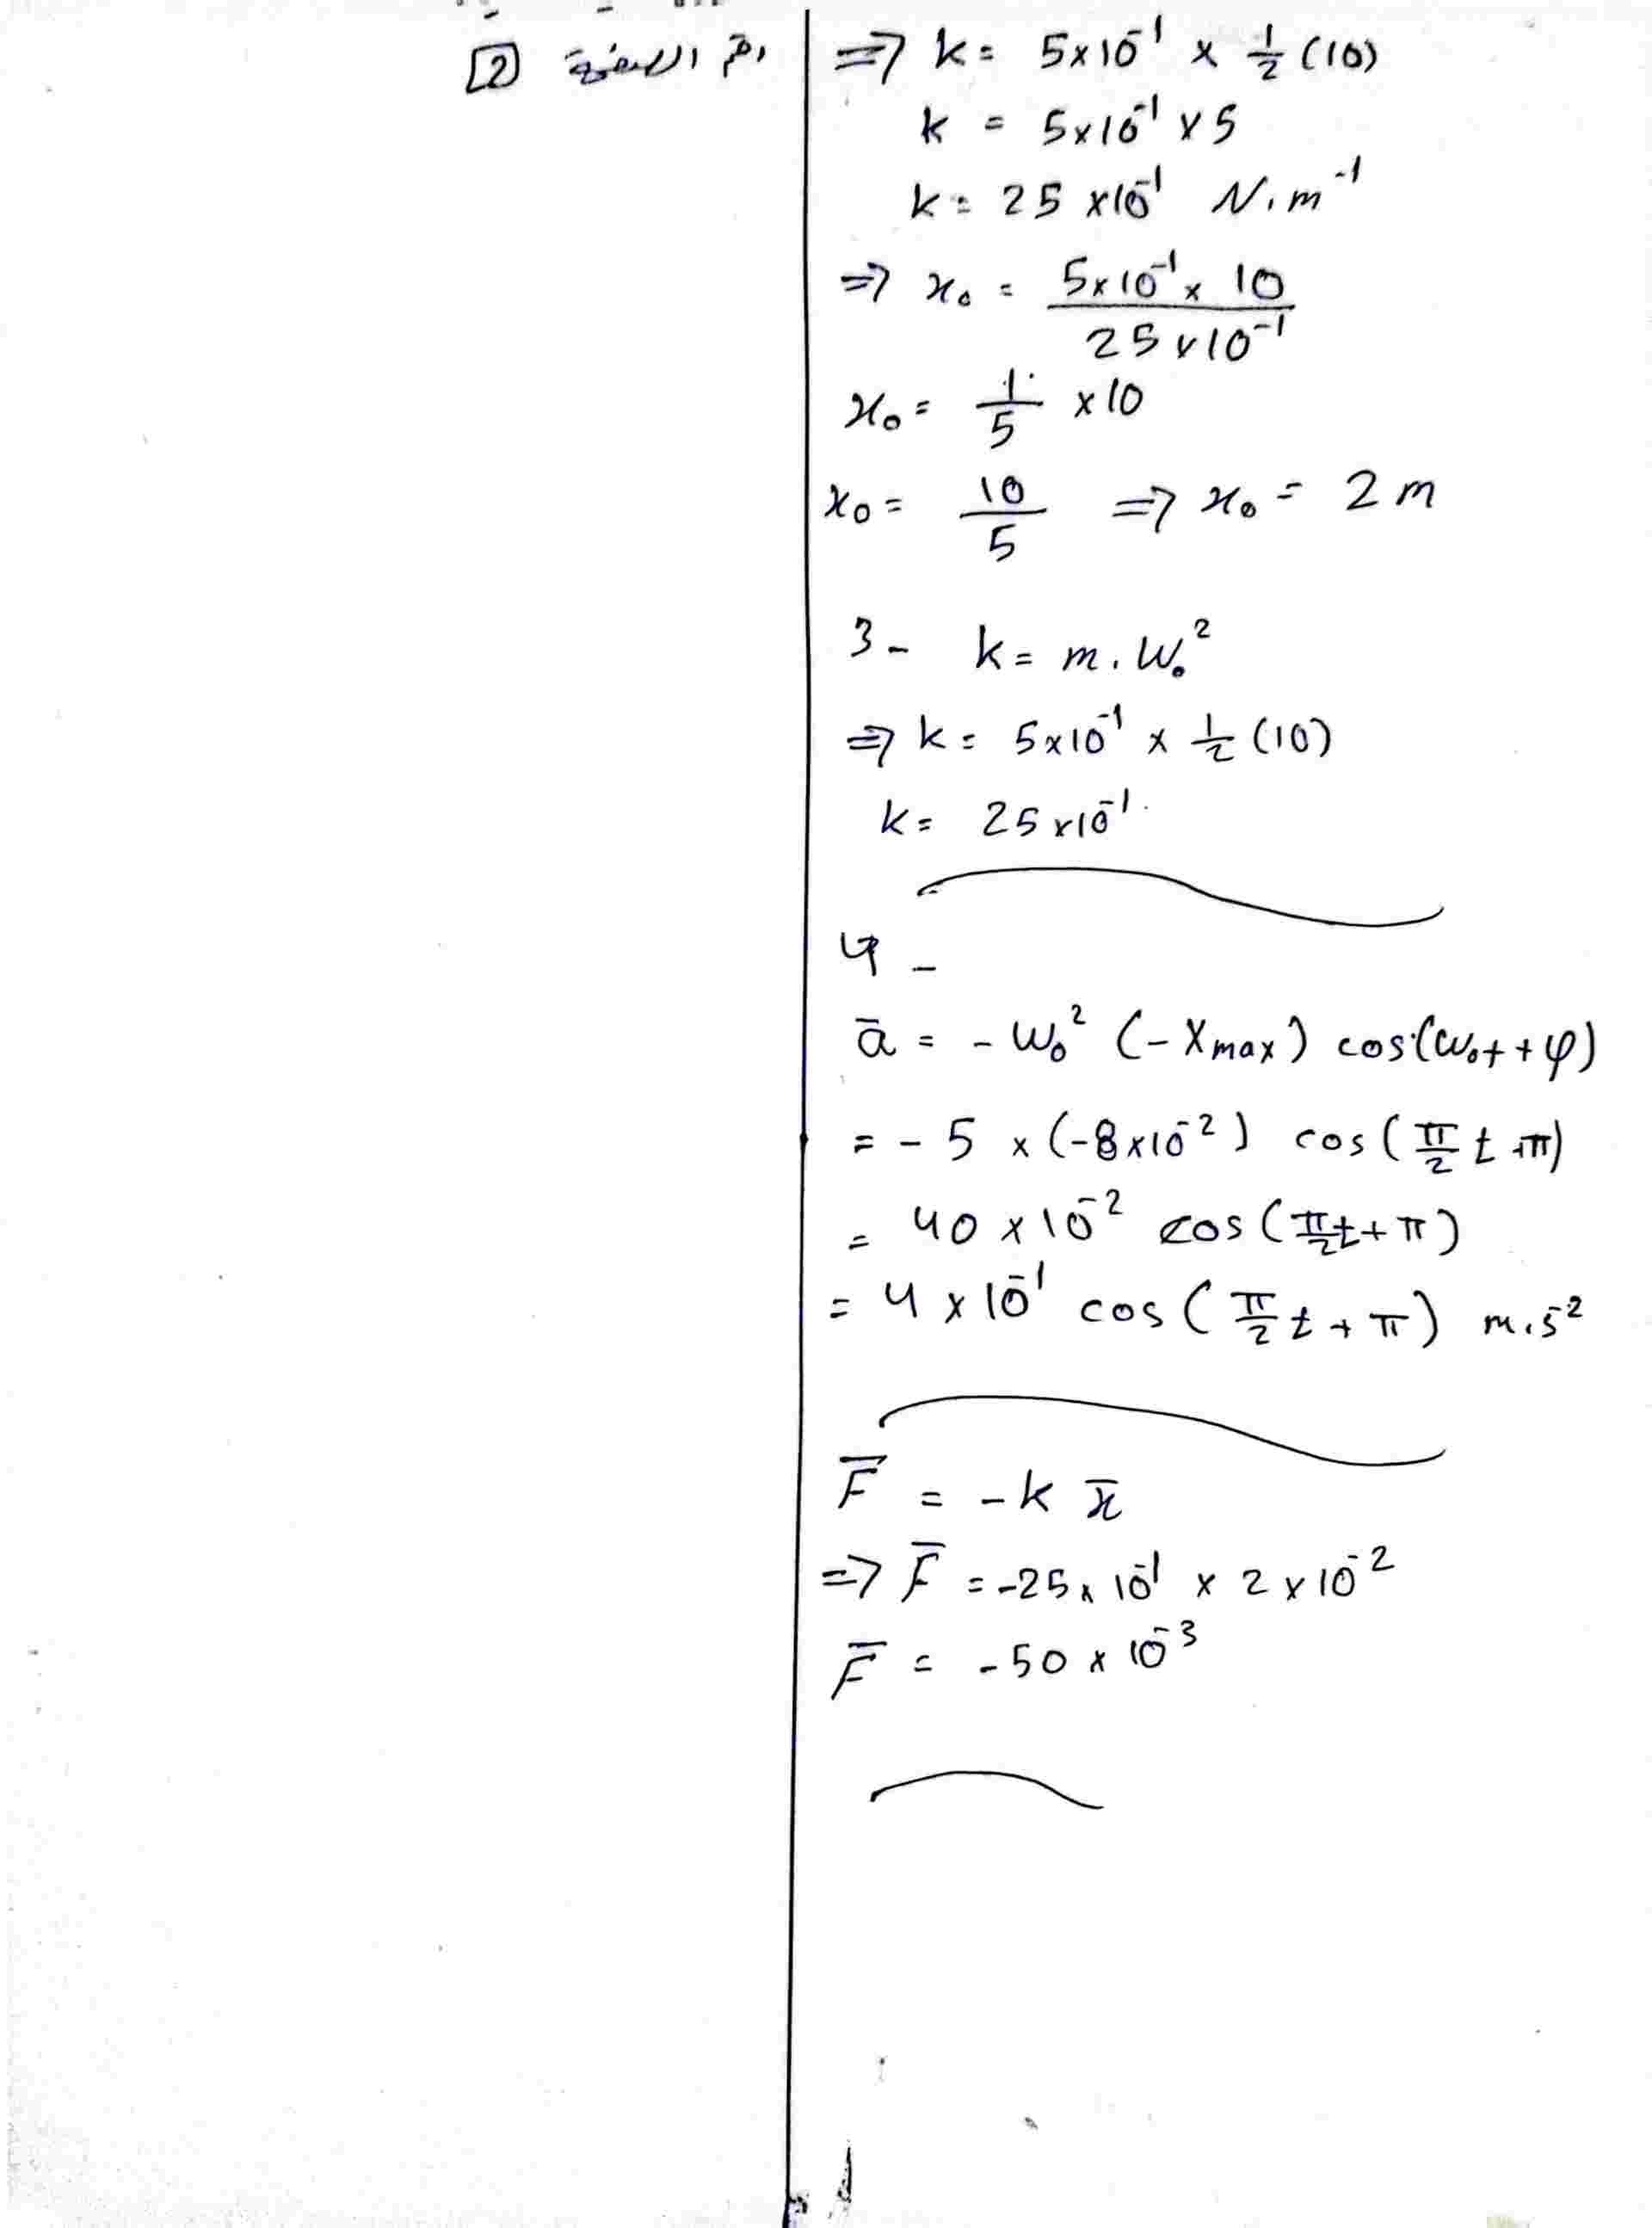 رقم الصفحة 2
=> k = 5×10⁻¹ × 1/2 (10)
k = 5×10⁻¹ × 5
k = 25 ×10⁻¹ N.m⁻¹
=> x₀ = (5×10⁻¹ × 10)/(25×10⁻¹)
x₀ = 1/5 ×10
x₀ = 10/5 => x₀ = 2 m
3- k = m . ω₀²
=> k = 5×10⁻¹ × 1/2 (10)
k = 25×10⁻¹
4 -
a̅ = - ω₀² (- Xmax) cos(ω₀t + φ)
= - 5 × (-8×10⁻²) cos(π/2 t +π)
= 40 × 10⁻² cos(π/2 t + π)
= 4 × 10⁻¹ cos(π/2 t + π) m.s⁻²
F̅ = - k x̅
=> F̅ = -25 × 10⁻¹ × 2 × 10⁻²
F̅ = - 50 × 10⁻³